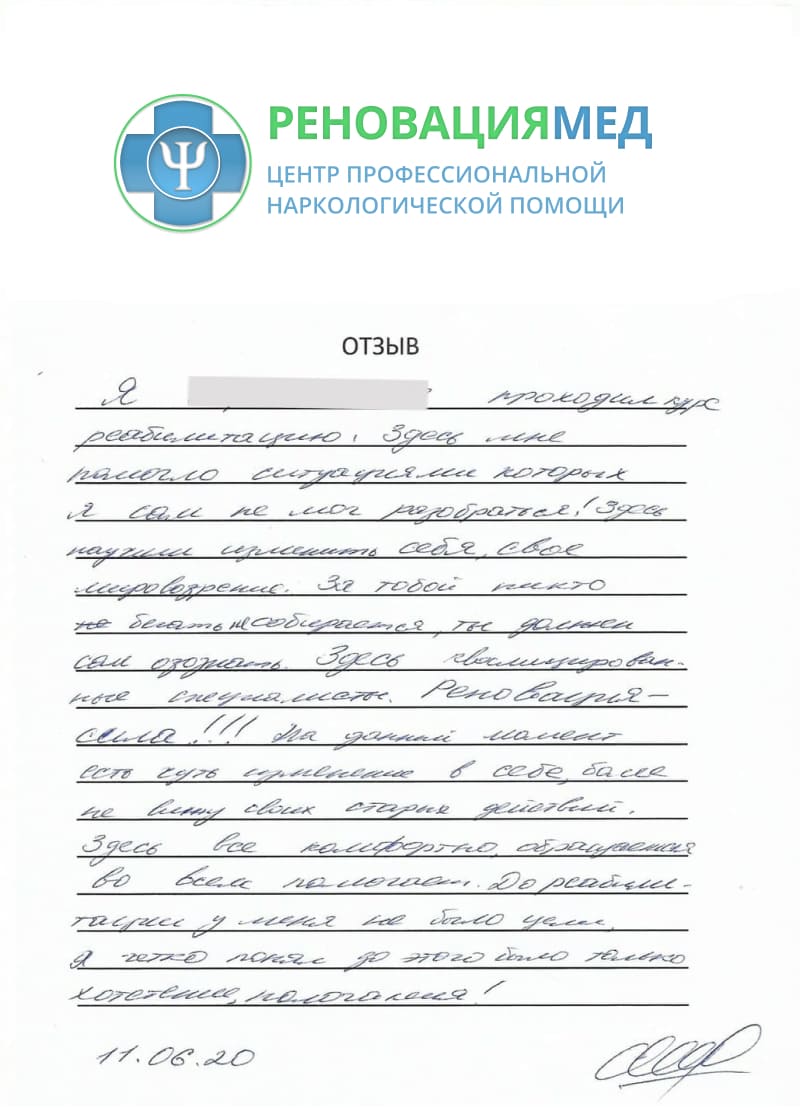 РЕНОВАЦИЯМЕД
ЦЕНТР ПРОФЕССИОНАЛЬНОЙ
НАРКОЛОГИЧЕСКОЙ ПОМОЩИ
ОТЗЫВ
Я проходил курс
реабилитацию. Здесь мне
помогло ситуациями которых
я сам не мог разобраться! Здесь
научили изменить себя, свое
мировозрение. За тобой никто
не бегать не собирается, ты должен
сам озознать. Здесь
ные специалисты. Реновация—
сила!!! На данный момент
есть чуть изменение в себе, более
не вижу своих старых действий.
Здесь все комфортно,
во всем помогает. До реабили-
тации у меня не было цели,
я четко понял до этого было только